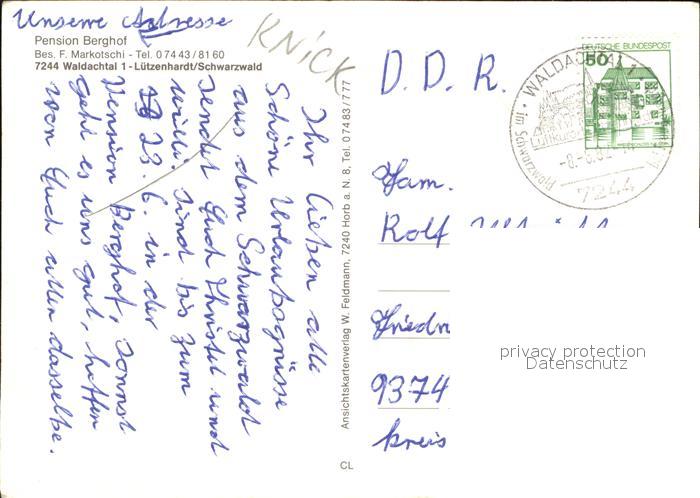 Unsere Adresse
Pension Berghof
Bes. F. Markotschi - Tel. 0 74 43 / 81 60
7244 Waldachtal 1 - Lützenhardt/Schwarzwald
KNICK
Ihr lieben alle
Schöne Urlaubsgrüsse
aus dem Schwarzwald
sendet Euch Christel und
Willi. Sind bis zum
23. 6. in der
Pension Berghof, sonnst
geht es uns gut, hoffen
von Euch allen dasselbe.
Ansichtskartenverlag W. Feldmann, 7240 Horb a. N. 8, Tel. 0 74 83 / 777
CL
D. D. R.
DEUTSCHE BUNDESPOST
50
WALDACHTAL 1
7244
Fam.
Rolf
Friedr
9374
Kreis
privacy protection
Datenschutz